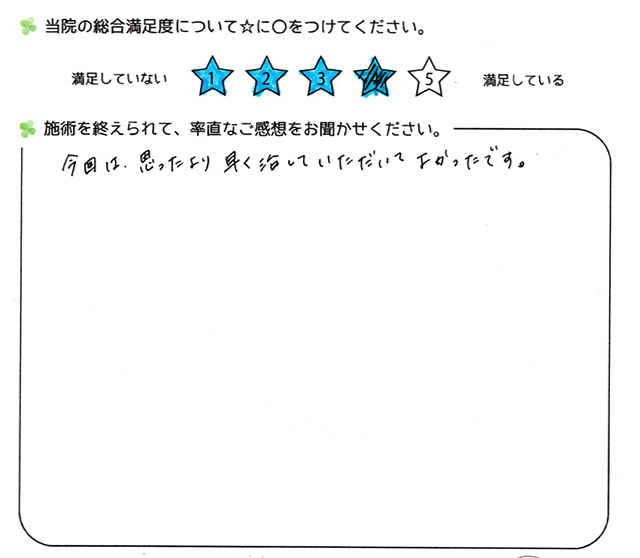 当院の総合満足度について☆に○をつけてください。
満足していない 1 2 3 5 満足している
施術を終えられて、率直なご感想をお聞かせください。
今回は、思ったより早く治していただいてよかったです。